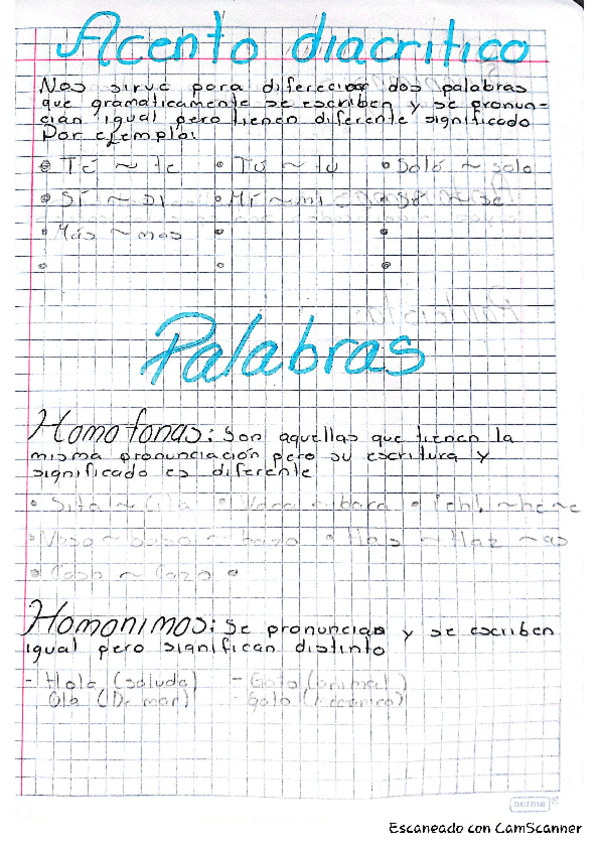 Acento diacritico
Nos sirve para difereciar dos palabras
que gramaticamente se escriben y se pronun-
cian igual pero tienen diferente significado
Por ejemplo:
• Té ~ te • Tú ~ tu • Soló ~ solo
• Sí ~ si • Mí ~ mi • Sé ~ se
• Más ~ mas
Palabras
Homofonas: Son aquellas que tienen la
misma pronunciación pero su escritura y
significado es diferente
• Sita ~ Cita • ~ baca •
• Vaso ~ baso ~ bazo • Has ~ Haz ~ as
• Casa ~ Caza •
Homonimos: Se pronuncian y se escriben
igual pero significan distinto
- Hola (saludo) - Gato (animal)
Ola (De mar) - Gato (Mecanico)
norma
Escaneado con CamScanner